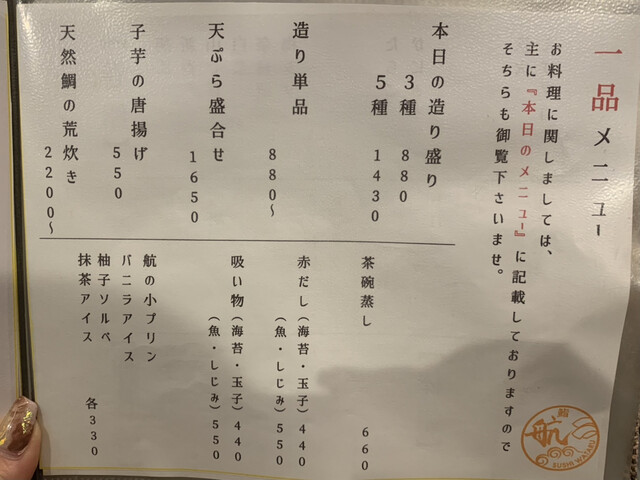 一品メニュー
お料理に関しましては、
主に『本日のメニュー』に記載しておりますので
そちらも御覧下さいませ。
本日の造り盛り
3種 880
5種 1430
造り単品
880〜
天ぷら盛合せ
1650
子芋の唐揚げ
550
天然鯛の荒炊き
2200〜
茶碗蒸し 660
赤だし(海苔・玉子)440
(魚・しじみ)550
吸い物(海苔・玉子)440
(魚・しじみ)550
航の小プリン
バニラアイス
柚子ソルベ
抹茶アイス
各330
鮨
航
SUSHI WATARU